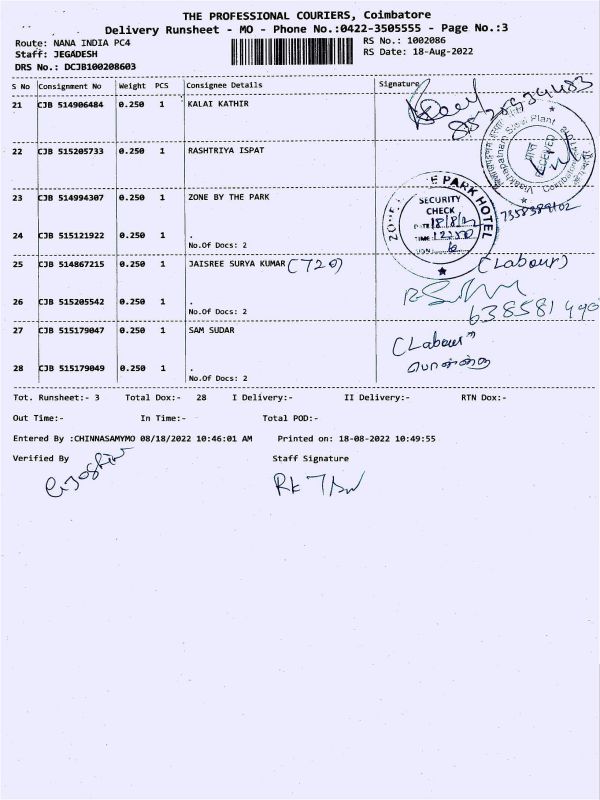 THE PROFESSIONAL COURIERS, Coimbatore
Delivery Runsheet - MO - Phone No.:0422-3505555 - Page No.:3
Route: NANA INDIA PC4
RS No.: 1002086
Staff: JEGADESH
RS Date: 18-Aug-2022
DRS No.: DCJB100208603
S No Consignment No Weight PCS Consignee Details Signature
21 CJB 514906484 0.250 1 KALAI KATHIR
22 CJB 515205733 0.250 1 RASHTRIYA ISPAT
Visakhapatnam Steel Plant
RECEIVED
Coimbatore
23 CJB 514994307 0.250 1 ZONE BY THE PARK
PARK HOTEL
SECURITY
CHECK
DATE 18/8/22
TIME
7358389102
24 CJB 515121922 0.250 1 .
No.Of Docs: 2
25 CJB 514867215 0.250 1 JAISREE SURYA KUMAR (720)
(Labour)
26 CJB 515205542 0.250 1 .
No.Of Docs: 2
27 CJB 515179047 0.250 1 SAM SUDAR
(Labour)
28 CJB 515179049 0.250 1 .
No.Of Docs: 2
Tot. Runsheet:- 3 Total Dox:- 28 I Delivery:- II Delivery:- RTN Dox:-
Out Time:- In Time:- Total POD:-
Entered By :CHINNASAMYMO 08/18/2022 10:46:01 AM Printed on: 18-08-2022 10:49:55
Verified By Staff Signature